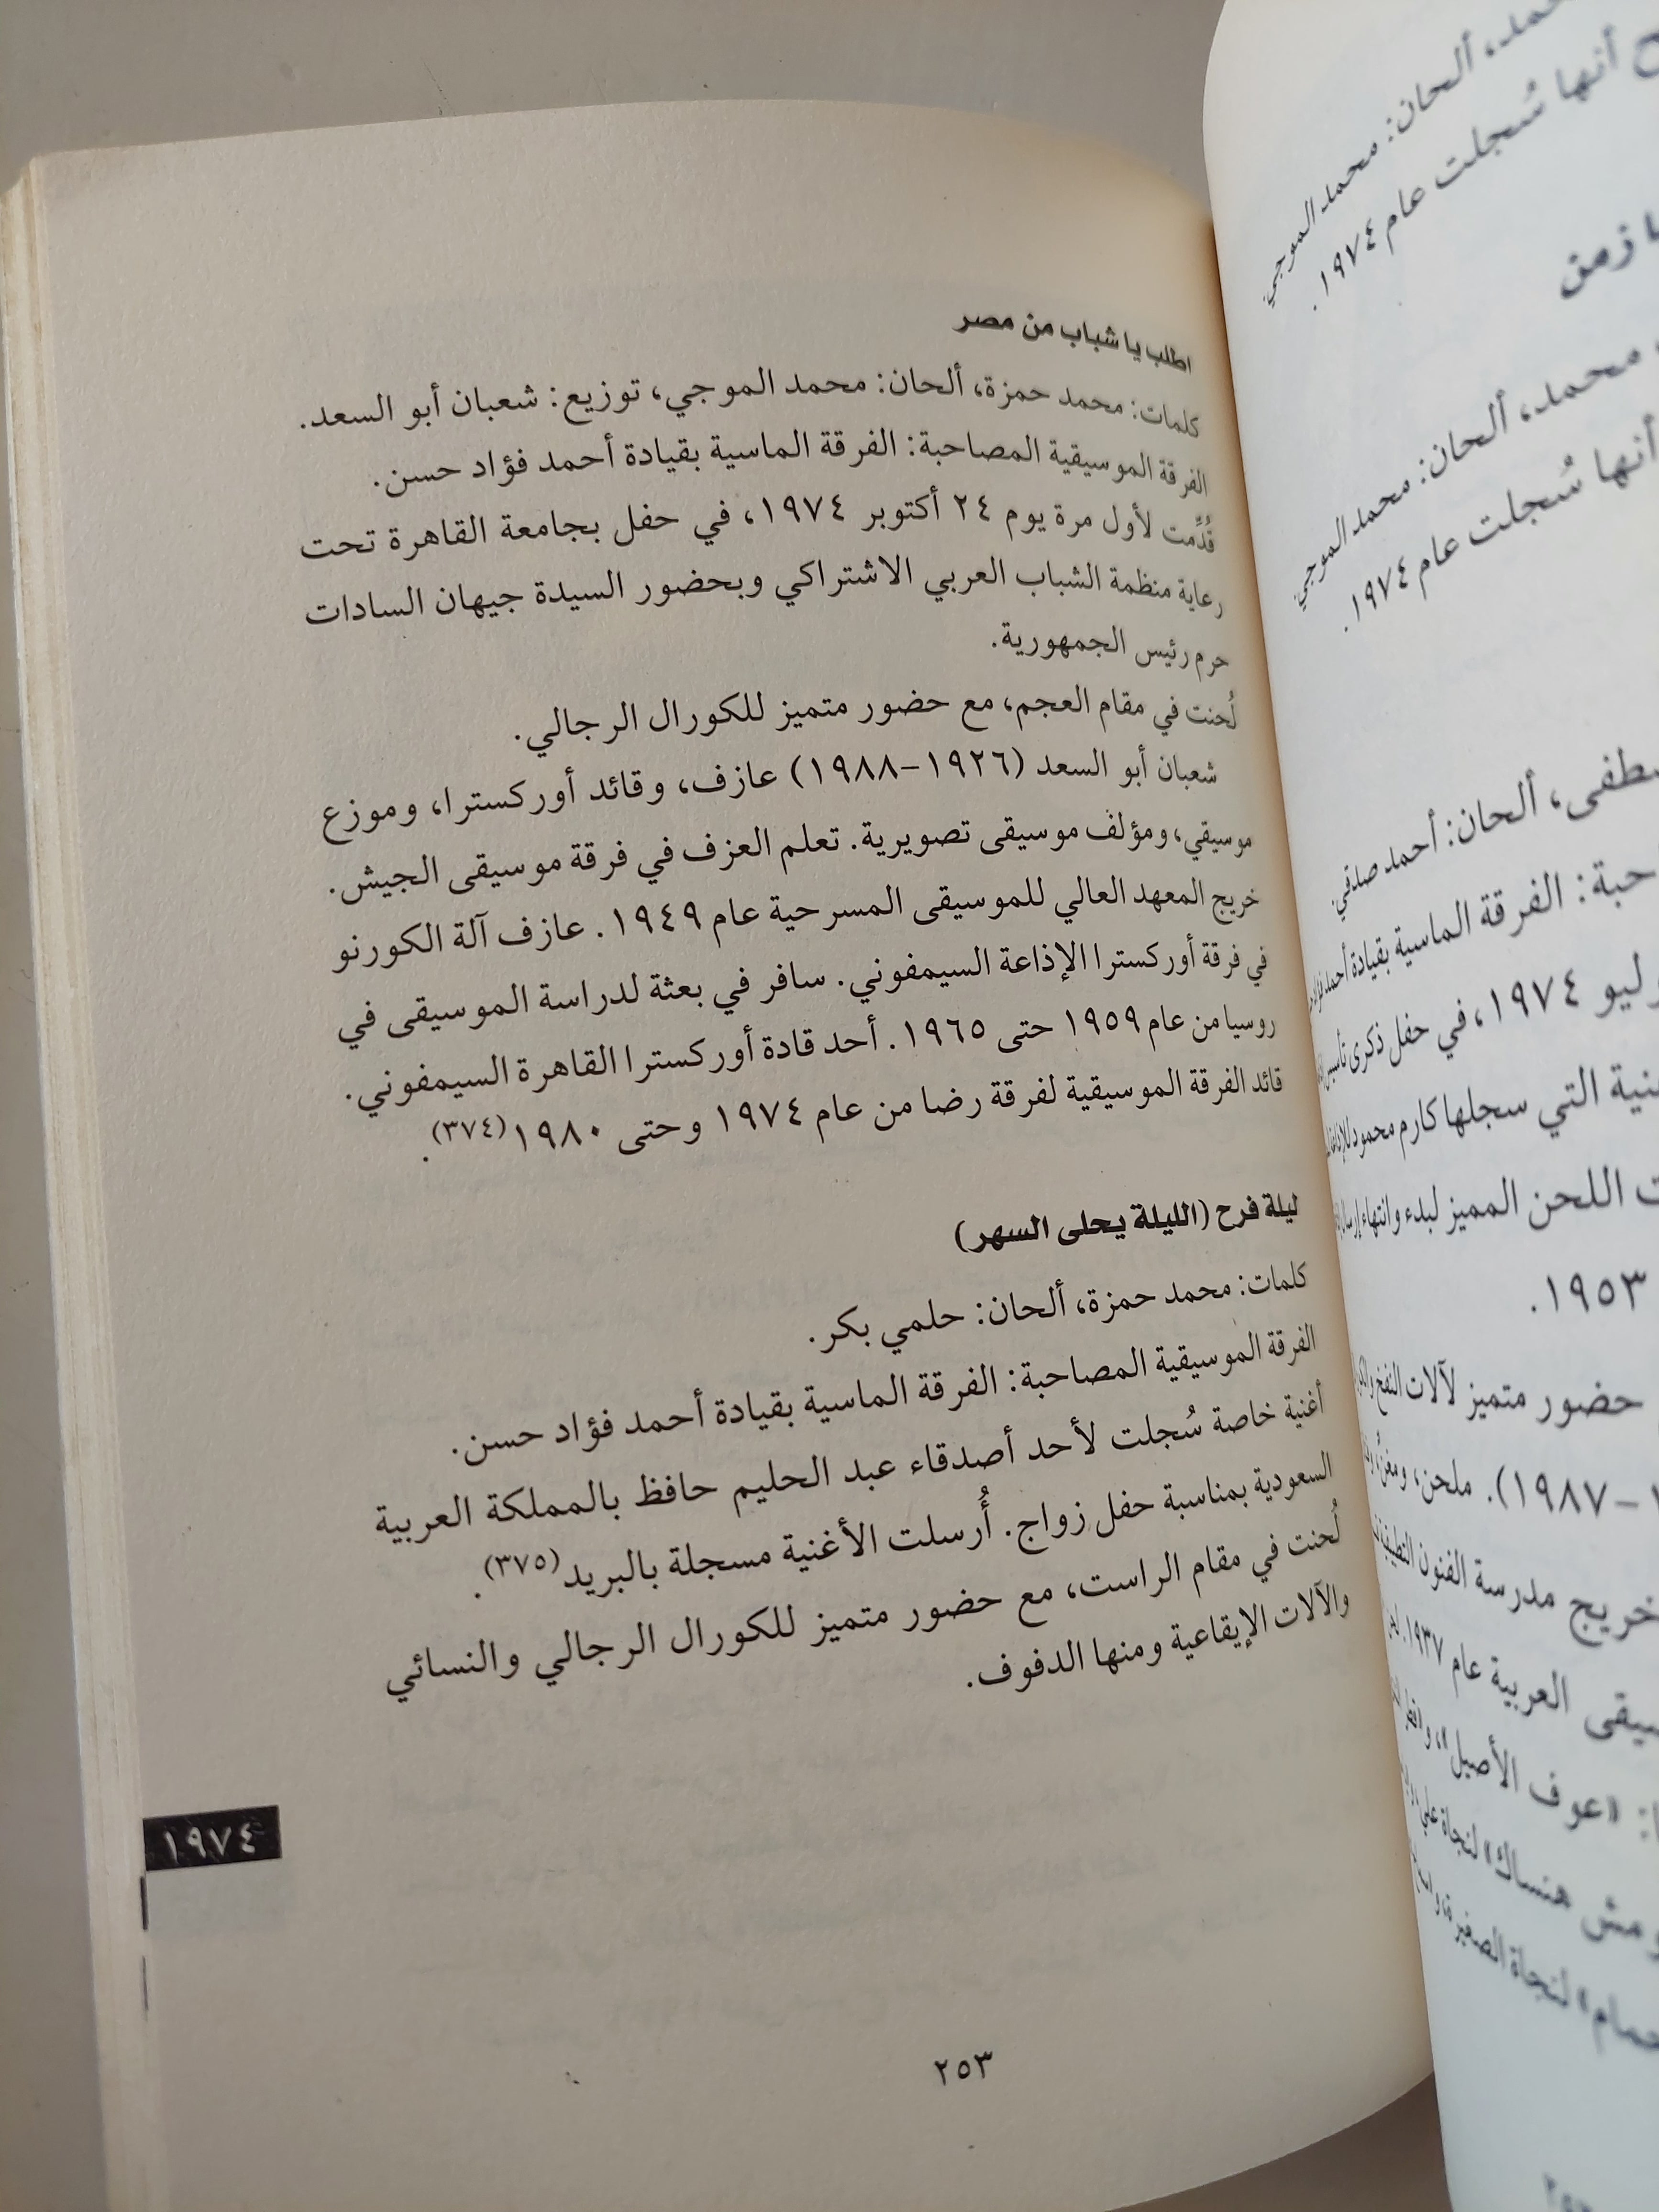 اطلب يا شباب من مصر
كلمات: محمد حمزة، ألحان: محمد الموجي، توزيع: شعبان أبو السعد.
الفرقة الموسيقية المصاحبة: الفرقة الماسية بقيادة أحمد فؤاد حسن.
قُدِّمت لأول مرة يوم ٢٤ أكتوبر ١٩٧٤، في حفل بجامعة القاهرة تحت
رعاية منظمة الشباب العربي الاشتراكي وبحضور السيدة جيهان السادات
حرم رئيس الجمهورية.
لُحنت في مقام العجم، مع حضور متميز للكورال الرجالي.
شعبان أبو السعد (١٩٢٦-١٩٨٨) عازف، وقائد أوركسترا، وموزع
موسيقي، ومؤلف موسيقى تصويرية. تعلم العزف في فرقة موسيقى الجيش.
خريج المعهد العالي للموسيقى المسرحية عام ١٩٤٩. عازف آلة الكورنو
في فرقة أوركسترا الإذاعة السيمفوني. سافر في بعثة لدراسة الموسيقى في
روسيا من عام ١٩٥٩ حتى ١٩٦٥. أحد قادة أوركسترا القاهرة السيمفوني.
قائد الفرقة الموسيقية لفرقة رضا من عام ١٩٧٤ وحتى ١٩٨٠(٣٧٤).
ليلة فرح (الليلة يحلى السهر)
كلمات: محمد حمزة، ألحان: حلمي بكر.
الفرقة الموسيقية المصاحبة: الفرقة الماسية بقيادة أحمد فؤاد حسن.
أغنية خاصة سُجلت لأحد أصدقاء عبد الحليم حافظ بالمملكة العربية
السعودية بمناسبة حفل زواج. أُرسلت الأغنية مسجلة بالبريد(٣٧٥).
لُحنت في مقام الراست، مع حضور متميز للكورال الرجالي والنسائي
والآلات الإيقاعية ومنها الدفوف.
١٩٧٤
٢٥٣
ألحان: محمد الموجي.
أنها سُجلت عام ١٩٧٤.
زمن
محمد، ألحان: محمد الموجي.
أنها سُجلت عام ١٩٧٤.
ألحان: أحمد صدقي.
الفرقة الماسية بقيادة أحمد
١٩٧٤، في حفل ذكرى تأسيس
التي سجلها كارم محمود
اللحن المميز لبدء وانتهاء
١٩٥٣.
حضور متميز لآلات النفخ
١٩٨٧). ملحن،
خريج مدرسة الفنون
العربية عام ١٩٣٧.
«عوف الأصيل»،
مش هنساك» لنجاة علي
لنجاة الصغيرة